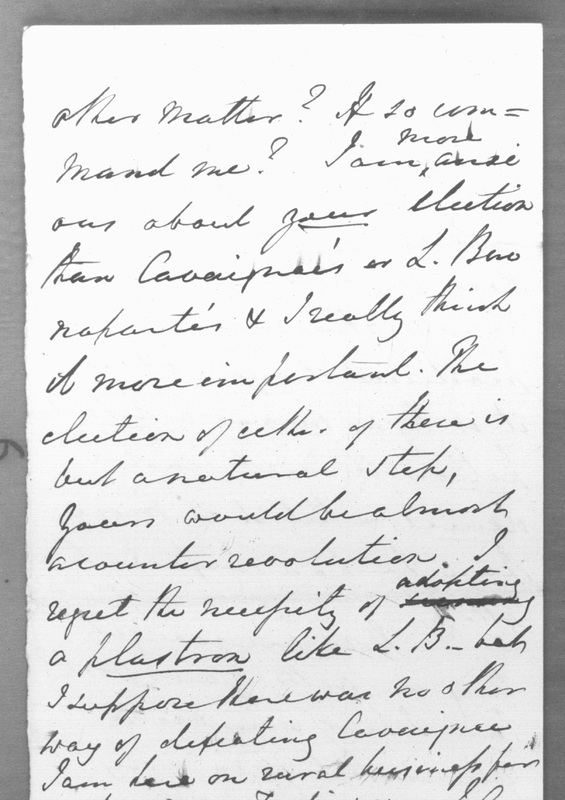 other matter? If so com=
mand me? I am more anxi
ous about your election
than Cavaignac's or L. Buo
naparte's & I really think
it more important. The
election of either of these is
but a natural step,
yours would be almost
a counter revolution. I
regret the necessity of adopting
a plastron like L. B. – but
I suppose there was no other
way of defeating Cavaignac
I am here on rural business for